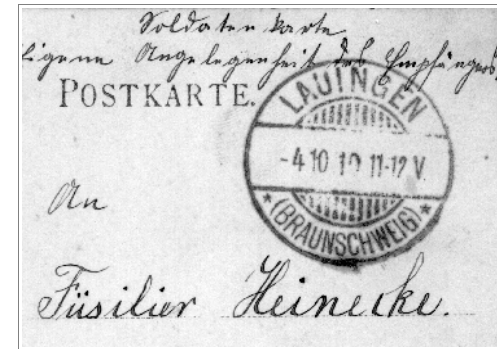 Soldatenkarte
Eigene Angelegenheit des Empfängers
POSTKARTE.
LAUINGEN
-4 10 10 11-12 V.
* (BRAUNSCHWEIG) *
An
Füsilier Heinecke.